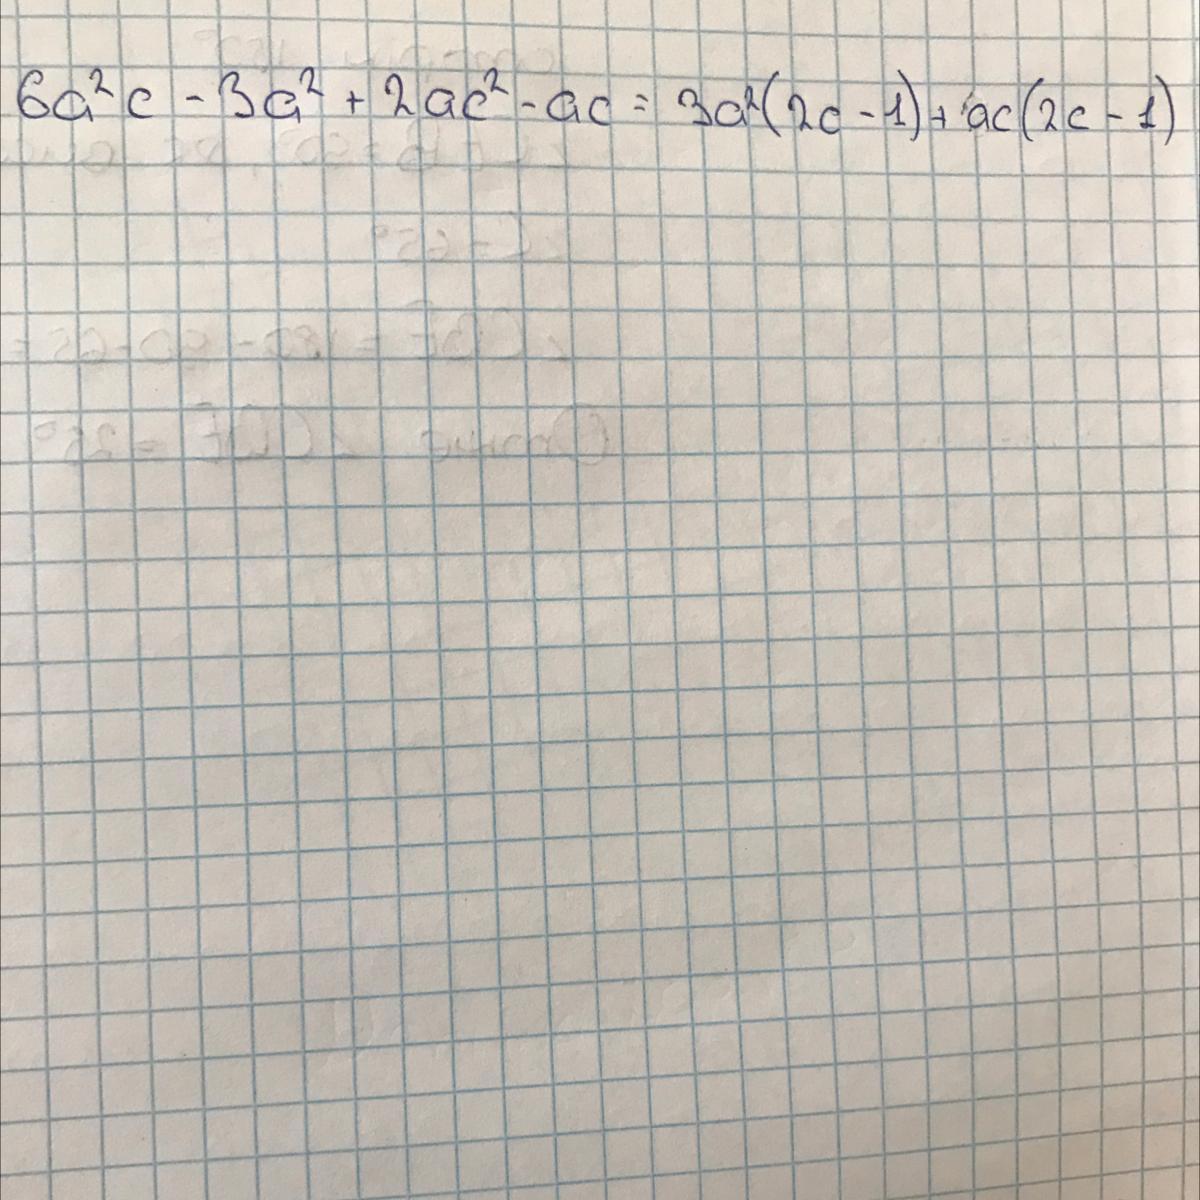 6a²c - 3a² + 2ac² - ac = 3a²(2c - 1) + ac(2c - 1)